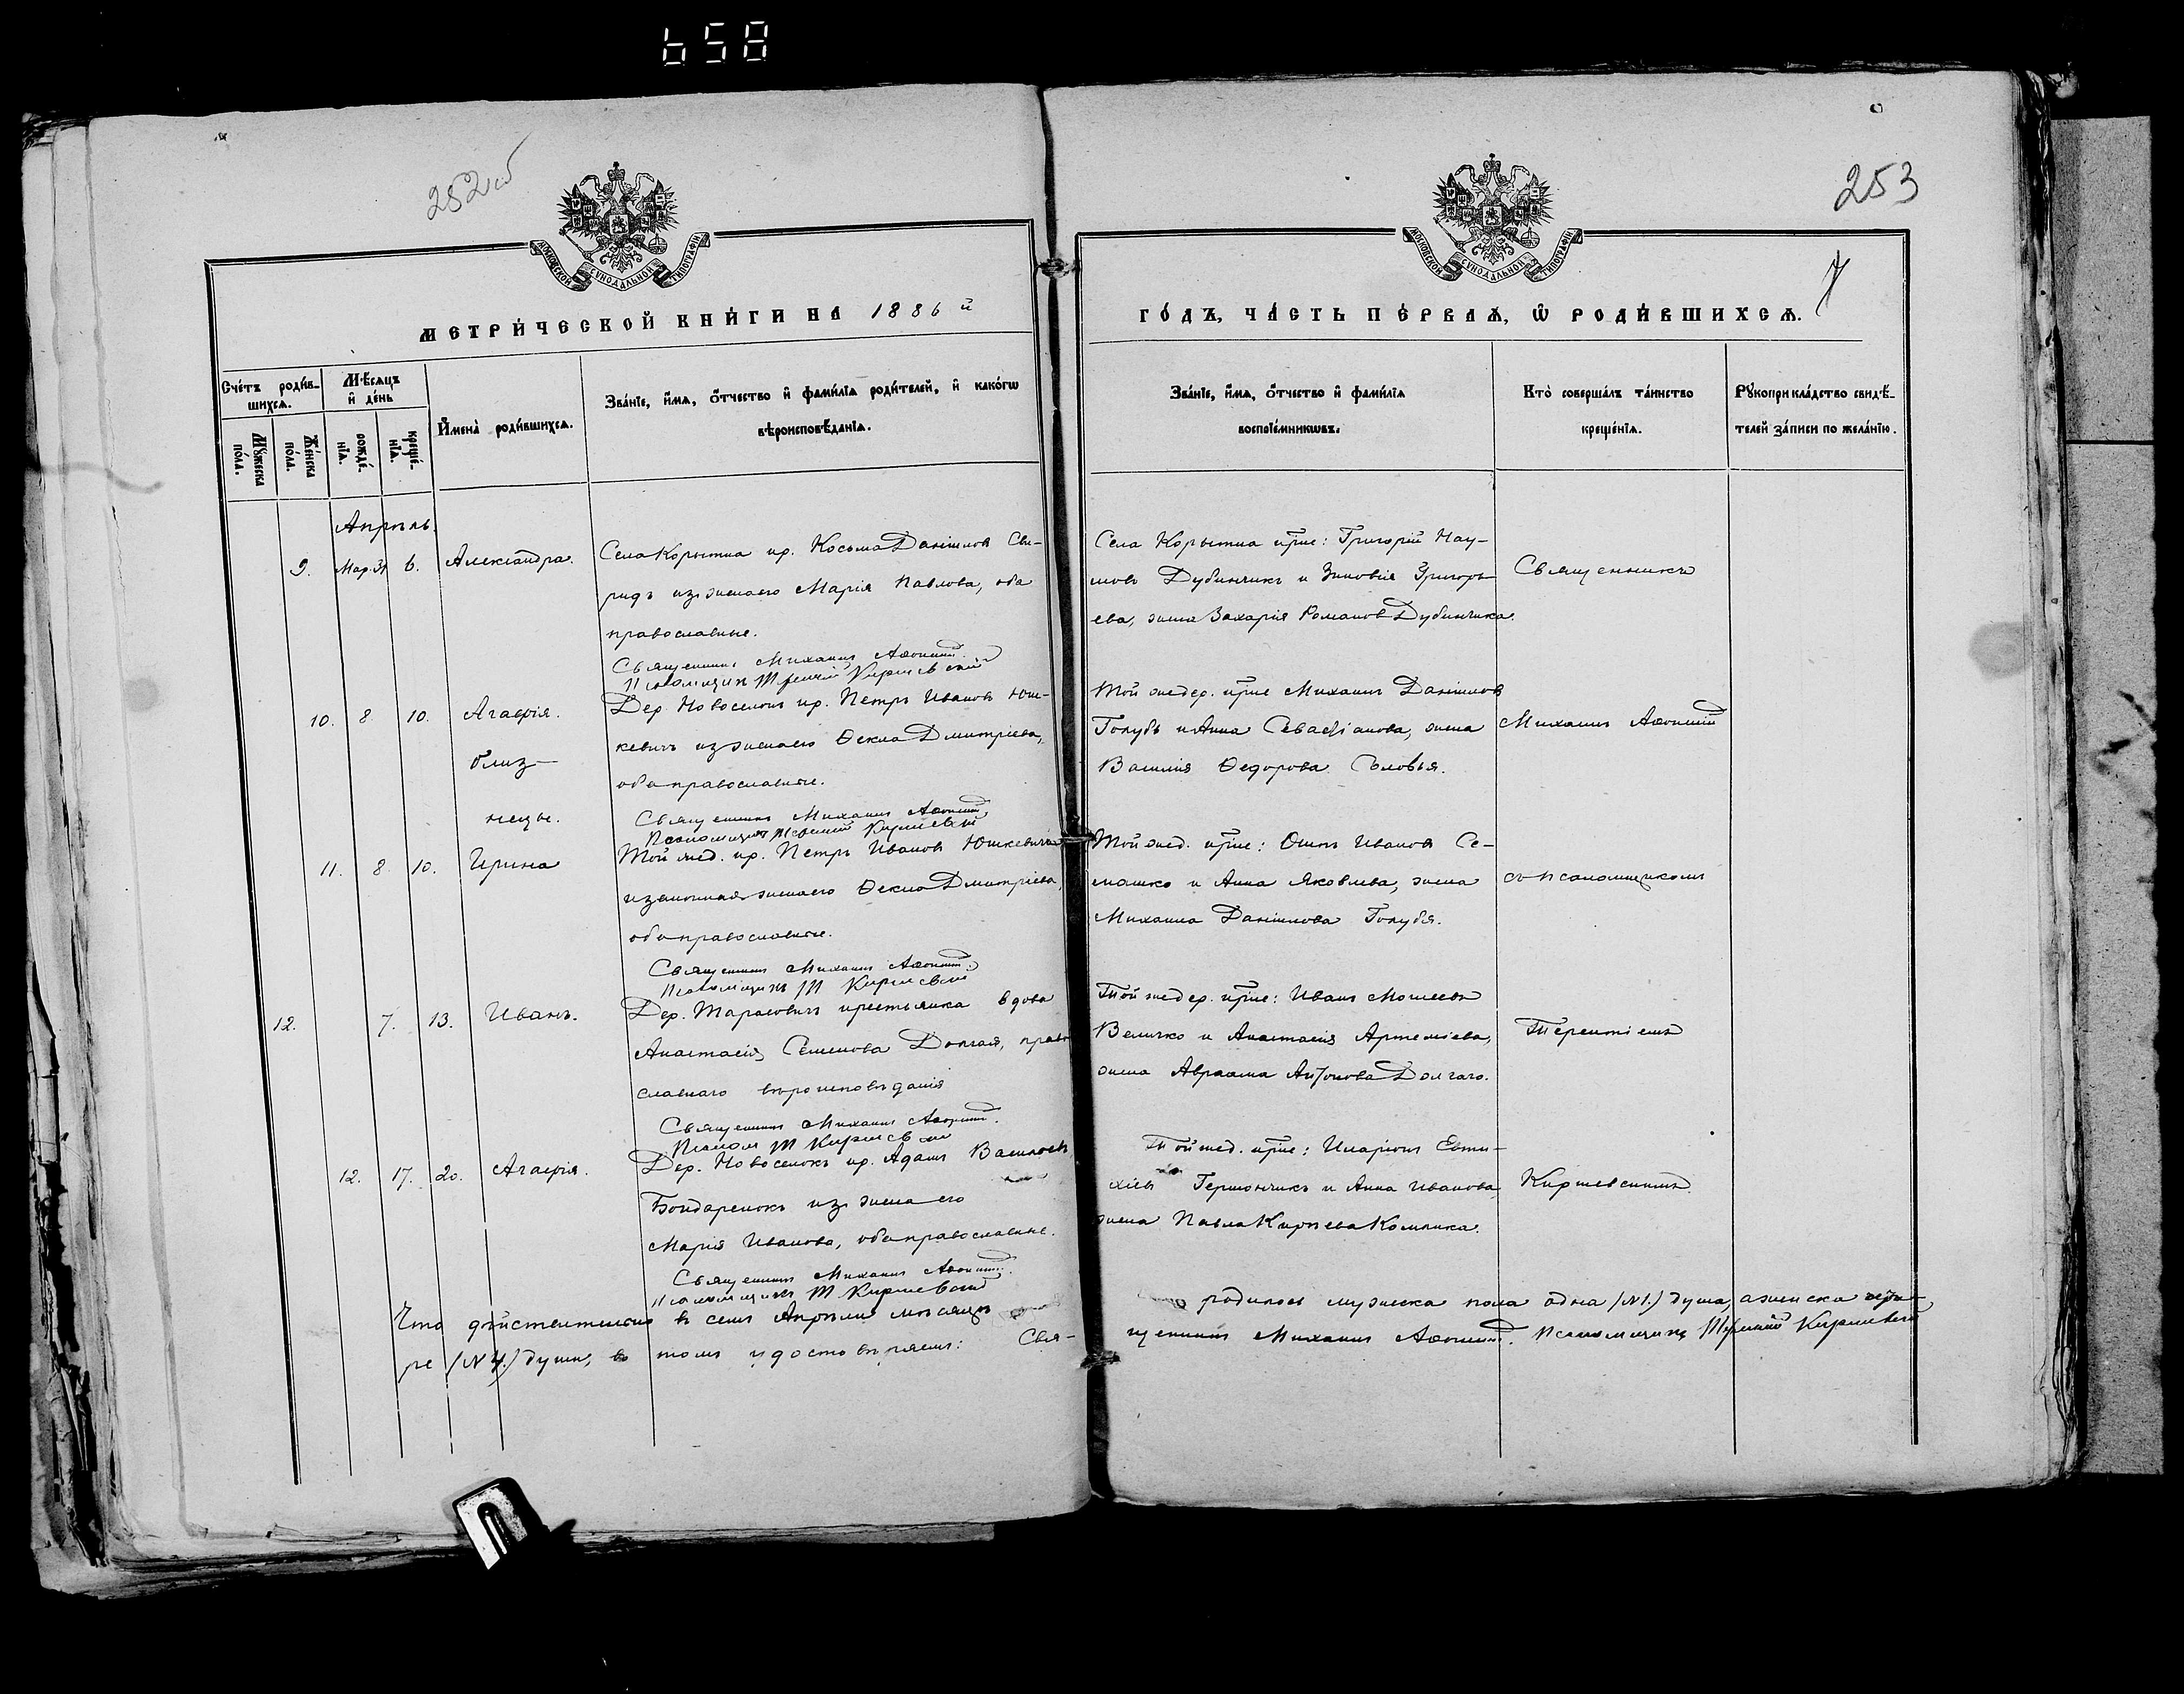 658
252об
253
7
МОСКОВСКОЙ СѴНОДАЛЬНОЙ ТИПОГРАФІИ
МОСКОВСКОЙ СѴНОДАЛЬНОЙ ТИПОГРАФІИ
МЕТРИ́ЧЕСКОЙ КНИ́ГИ НА 1886 й
ГО́ДЪ, ЧА́СТЬ ПЕ́РВАѦ, Ѡ РОДИ́ВШИХСѦ.
Сче́тъ роди́в-
шихсѧ.
Мѣ́сѧцъ
и де́нь
Мꙋ́жеска
по́ла.
Же́нска
по́ла.
рожде́-
нїѧ.
креще́-
нїѧ.
Имена̀ роди́вшихсѧ.
Зва́нїе, и́мѧ, о́тчество и фами́лїѧ роди́телей, и како́гѡ
вѣроисповѣ́данїѧ.
Зва́нїе, и́мѧ, о́тчество и фами́лїѧ
воспрїе́мникѡвъ.
Кто̀ соверша́лъ та́инство
креще́нїѧ.
Рꙋкоприкла́дство свидѣ́-
телей за́писи по жела́нїю.
Апрѣль.
9. Мар. 31 6. Александра.
Села Корытна кр. Косьма Даніиловъ Сви-
ридъ и з. жена его Марія Павлова, оба
православные.
Священникъ Михаилъ
Псаломщикъ Терентій Киршевскій
Села Корытна крѣне: Григорій Нау-
мовъ Дубинчикъ и Зиновія Григорь-
ева, жена Захарія Романова Дубинчика.
Священникъ
10. 8 10. Агафія.
близ-
нецы.
Дер. Новоселокъ кр. Петръ Ивановъ Юш-
кевичъ и з. жена его Ѳекла Димитріева,
оба православные.
Священникъ Михаилъ
Псаломщикъ Терентій Киршевскій
Той же дер. крѣне Михаилъ Даніиловъ
Голубъ и Анна Севастіанова, жена
Василія Ѳедорова Соловья.
Михаилъ
11. 8 10. Ирина
Той же д. кр. Петръ Ивановъ Юшкевичъ
и законная жена его Ѳекла Димитріева,
оба православные.
Священникъ Михаилъ
Псаломщикъ Т Киршевскій
Той же д. крѣне: Ивановъ Се-
машко и Анна Яковлева, жена
Михаила Даніилова Голубя.
съ псаломщикомъ
12. 7. 13. Иванъ.
Дер. Тарасовичъ крестьянка вдова
Анастасія Семенова Долгая, право-
славнаго вѣроисповѣданія
Священникъ Михаилъ
Псалом Т Киршевскій
Той же дер. крѣне: Иванъ Моисеевъ
Величко и Анастасія Артеміева,
жена Авраама Антонова Долгаго.
Терентіемъ
12. 17. 20. Агафія.
Дер. Новоселокъ кр. Адамъ Васильевъ
Бондаренокъ и з. жена его
Марія Иванова, оба православные.
Священникъ Михаилъ
Псаломщикъ Т Киршевскій
Той же д. крѣне: Иларіонъ Евти-
хіевъ Гермончикъ и Анна Иванова,
жена Павла Кирѣева Комлика.
Киршевскимъ.
Что дѣйствительно въ семъ Апрѣлѣ мѣсяцѣ
родилось мужеска пола одна (№ 1.) душа, а женска четы-
ре (№ 4.) души, въ томъ удостовѣряемъ: Свя-
щенникъ Михаилъ Псаломщикъ Терентій Киршевскій